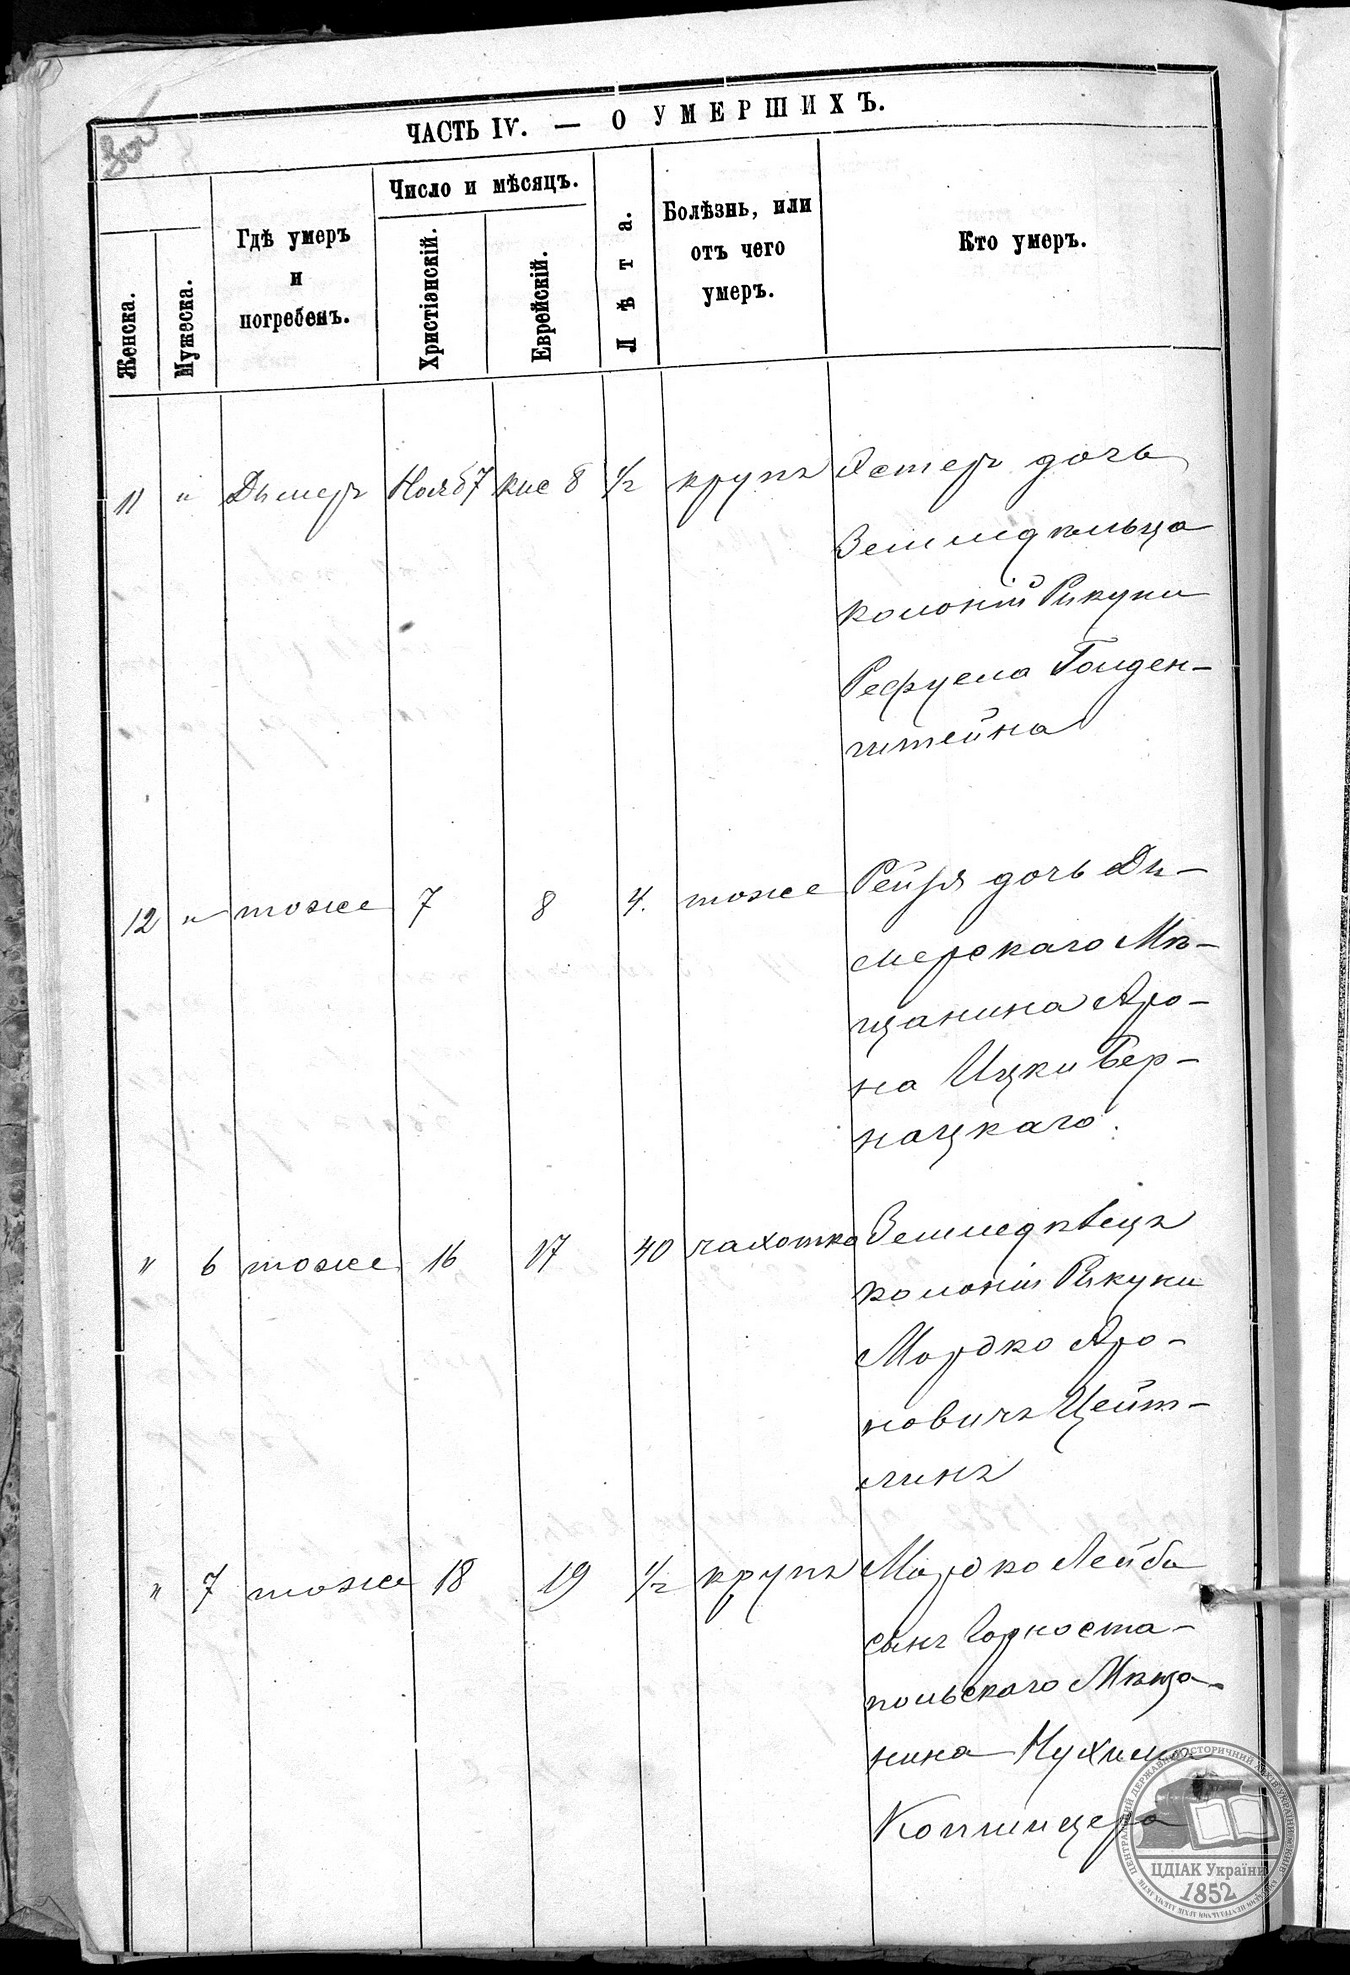 ЧАСТЬ IV. — О УМЕРШИХЪ.
Женска.
Мужеска.
Гдѣ умеръ
и
погребенъ.
Число и мѣсяцъ.
Христіанскій.
Еврейскій.
Лѣта.
Болѣзнь, или
отъ чего
умеръ.
Кто умеръ.
11 " Дымеръ Нояб 7 кис 8 1/2 крупъ Эстеръ дочь
Земледѣльца
колоніи Рикуни
Рефуела Голден-
штейна
12 " тоже 7 8 4. тоже Рейзя дочь Ды-
мерскаго Мѣ-
щанина Аро-
на Ицки Бер-
нацкаго.
" 6 тоже 16 17 40 чахотка Земледѣлецъ
колоніи Рикуни
Мордко Аро-
новичъ Цейт-
линъ
" 7 тоже 18 19 1/2 крупъ Мордко Лейба
сынъ Горноста-
польскаго Мѣща-
нина Нухима
ЦДІАК України
1852